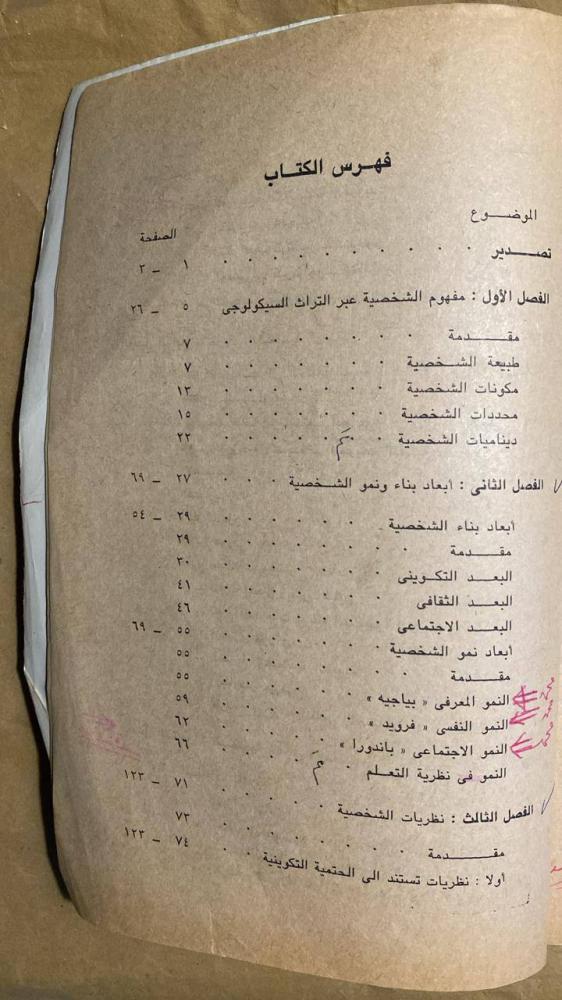 فهـرس الكتـاب
الموضـــوع
الصفحة
تصـــدير ١ ــ ٣
الفصل الأول : مفهوم الشخصية عبر التراث السيكولوجى ٥ ــ ٢٦
مقـــدمة ٧
طبيعة الشـخصية ٧
مكونات الشخصية ١٣
محددات الشخصية ١٥
ديناميات الشخصية ٢٢
الفصل الثانى : أبعاد بناء ونمو الشـخصية ٢٧ ــ ٦٩
أبعاد بناء الشخصية ٢٩ ــ ٥٤
مقـــدمة ٢٩
البعـد التكـوينى ٣٠
البعـد الثقافى ٤١
البعـد الاجتماعى ٤٦
أبعاد نمو الشخصية ٥٥ ــ ٦٩
مقـــدمة ٥٥
النمو المعرفى « بياجيه » ٥٥
النمو النفسى « فرويد » ٥٩
النمو الاجتماعى « باندورا » ٦٢
النمو فى نظرية التعـلم ٦٦
الفصل الثالث : نظريات الشخصية ٧١ ــ ١٢٣
مقـــدمة ٧٣
أولا : نظريات تستند الى الحتمية التكوينية ٧٤ ــ ١٢٣